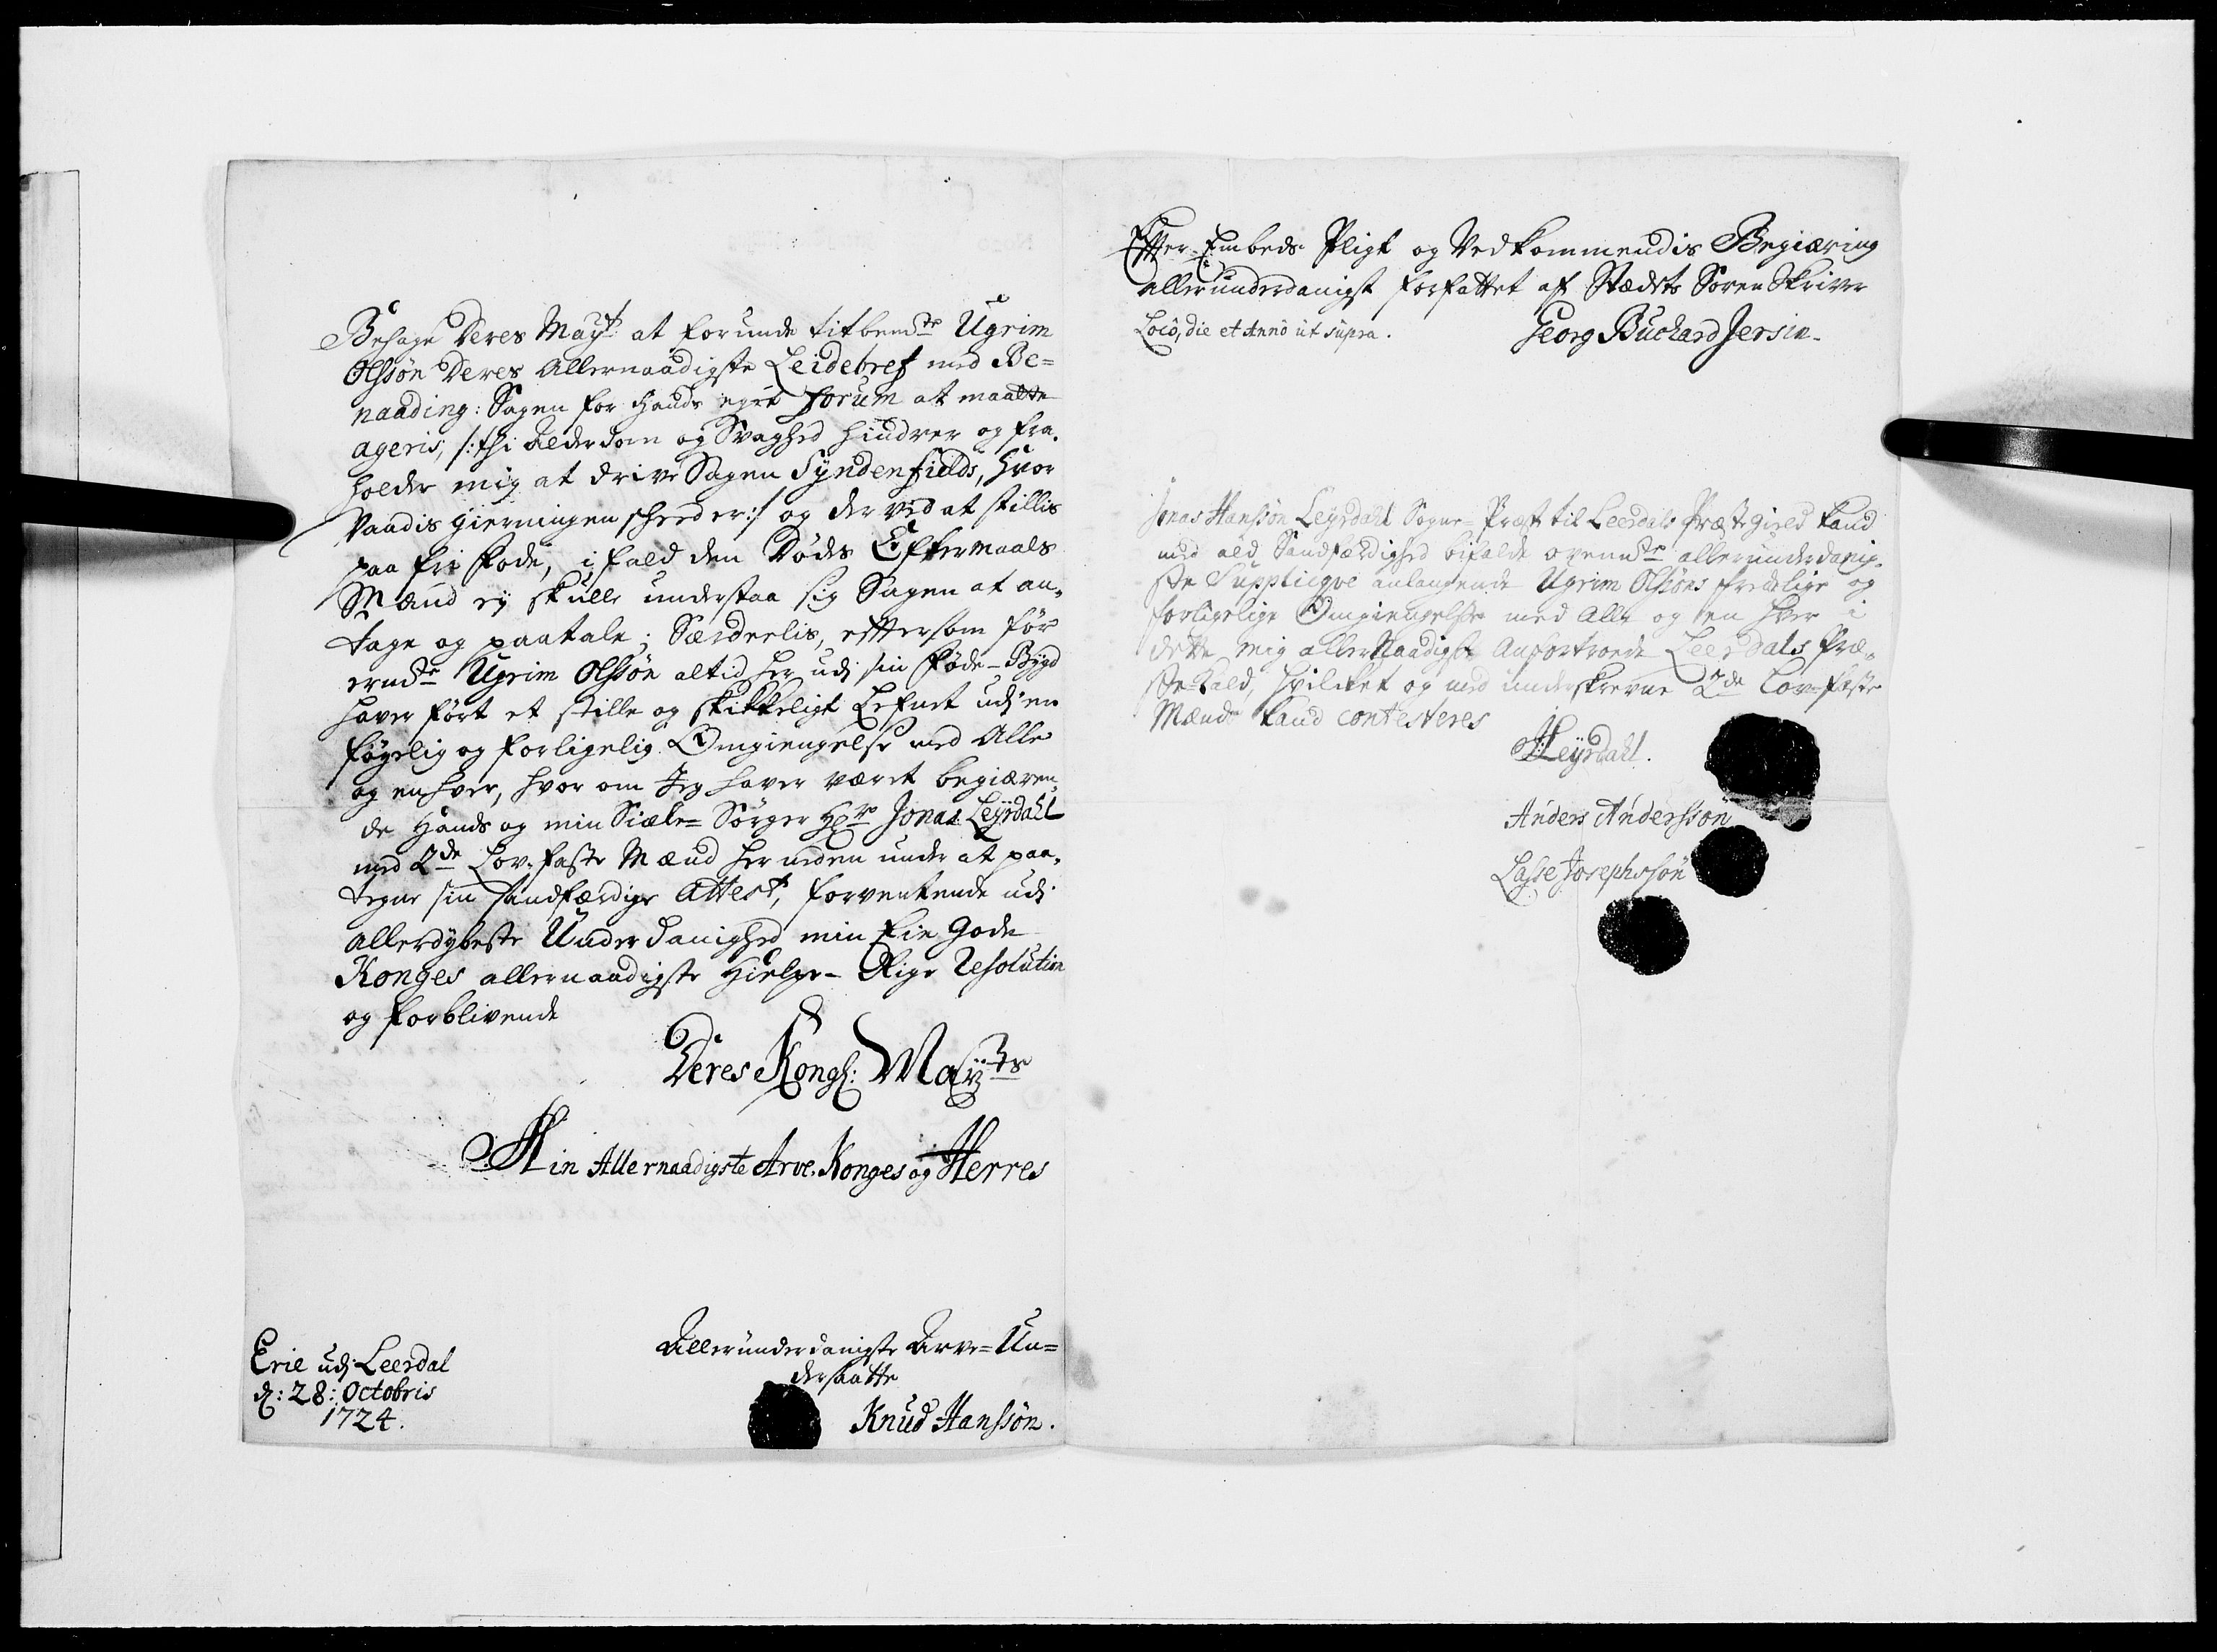 Behage Deres Mayt: at forunde titbemdte Ugrim
Olssøn Deres Allernaadigste Leidebref med Be=
naading: Sagen for Hands eget Forum at maatte
ageris, /:thi Alderdom og Svaghed hindrer og fra-
holder mig at drive Sagen Syndenfields, hvor
Vaadis Gierningen skeed er:/ og der ved at stillis
paa frie Fode, ifald den Dødes Eftermaals
Mænd ej skulle understaa sig Sagen at an-
tage og paatale; Særdeelis, eftersom før
ermdte Ugrim Olssøn altid her udj sin Føde-Bygd
haver ført et stille og skikkeligt Lefnet udj en
føyelig og forligelig Omgiengelse med Alle
og enhver, hvor om Jeg haver været begiæren-
de Hands og min Siæle= Sørger Hr Jonas Leyrdahl
med 2de Lov-faste Mænd her neden under at paa-
tegne sin sandfærdige Attest, forventende udj
allerdybeste Underdanighed min Eie Gode
Konges allernaadigste Hielpe- Rige Resolution
og forblivende
Deres Kongl: Mayts
Min Allernaadigste Arve-Konges og Herres
Erie udj Leerdal
d: 28: Octobris
1724.
Allerunderdanigste Arve=Un=
dersaatte
Knud Hanssøn.
Efter Embeds Pligt og Vedkommendis Begiæring
allerunderdanigst forfattet af Stædets Soren Skriver
Locô, die et Annô ut supra.
Georg Buchard Jersin.
Jonas Hanssøn Leyrdahl Sogne=Præst til Leerdals Præstegield kand
med ald Sandfærdighed bifalde ovenmdte allerunderdanig-
ste Suppliqve anlangende Ugrim Olssøns fredelige og
forligelige Omgiengelse med Alle og en hver i
dette mig allernaadigst Anfortroede Leerdals Præ-
ste-Kald, hvilket og med underskrevne 2de Lov-faste
Mænd kand contesteres
JHLeyrdahl.
Anders Anderssøn
Lasse Josephssøn